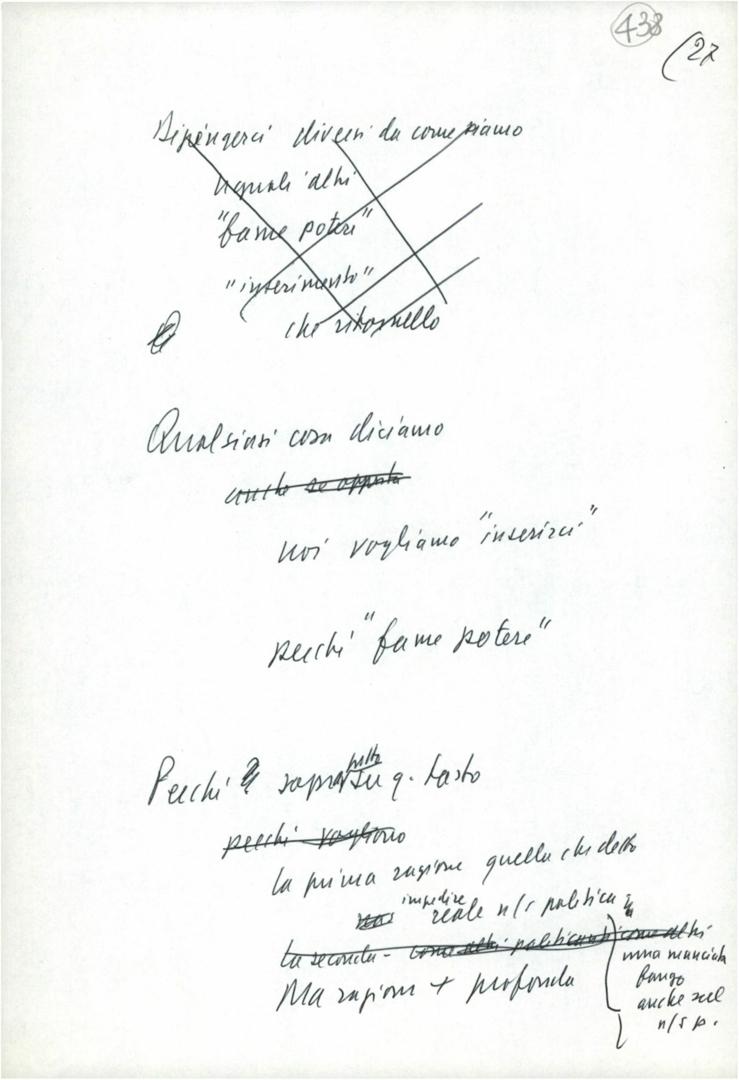 438
(27
Dipingerci diversi da come siamo
uguali altri
"fame potere"
"inserimento"
che ritornello
Qualsiasi cosa diciamo
anche se opposta
noi vogliamo "inserirci"
perché "fame potere"
Perché soprattutto su q. tasto
perché vogliono
la prima ragione quella che detto
impedire
reale n/s politica
La seconda - come altri politicanti come altri
Ma ragione + profonda
una manciata
fango
anche sul
n/s p.